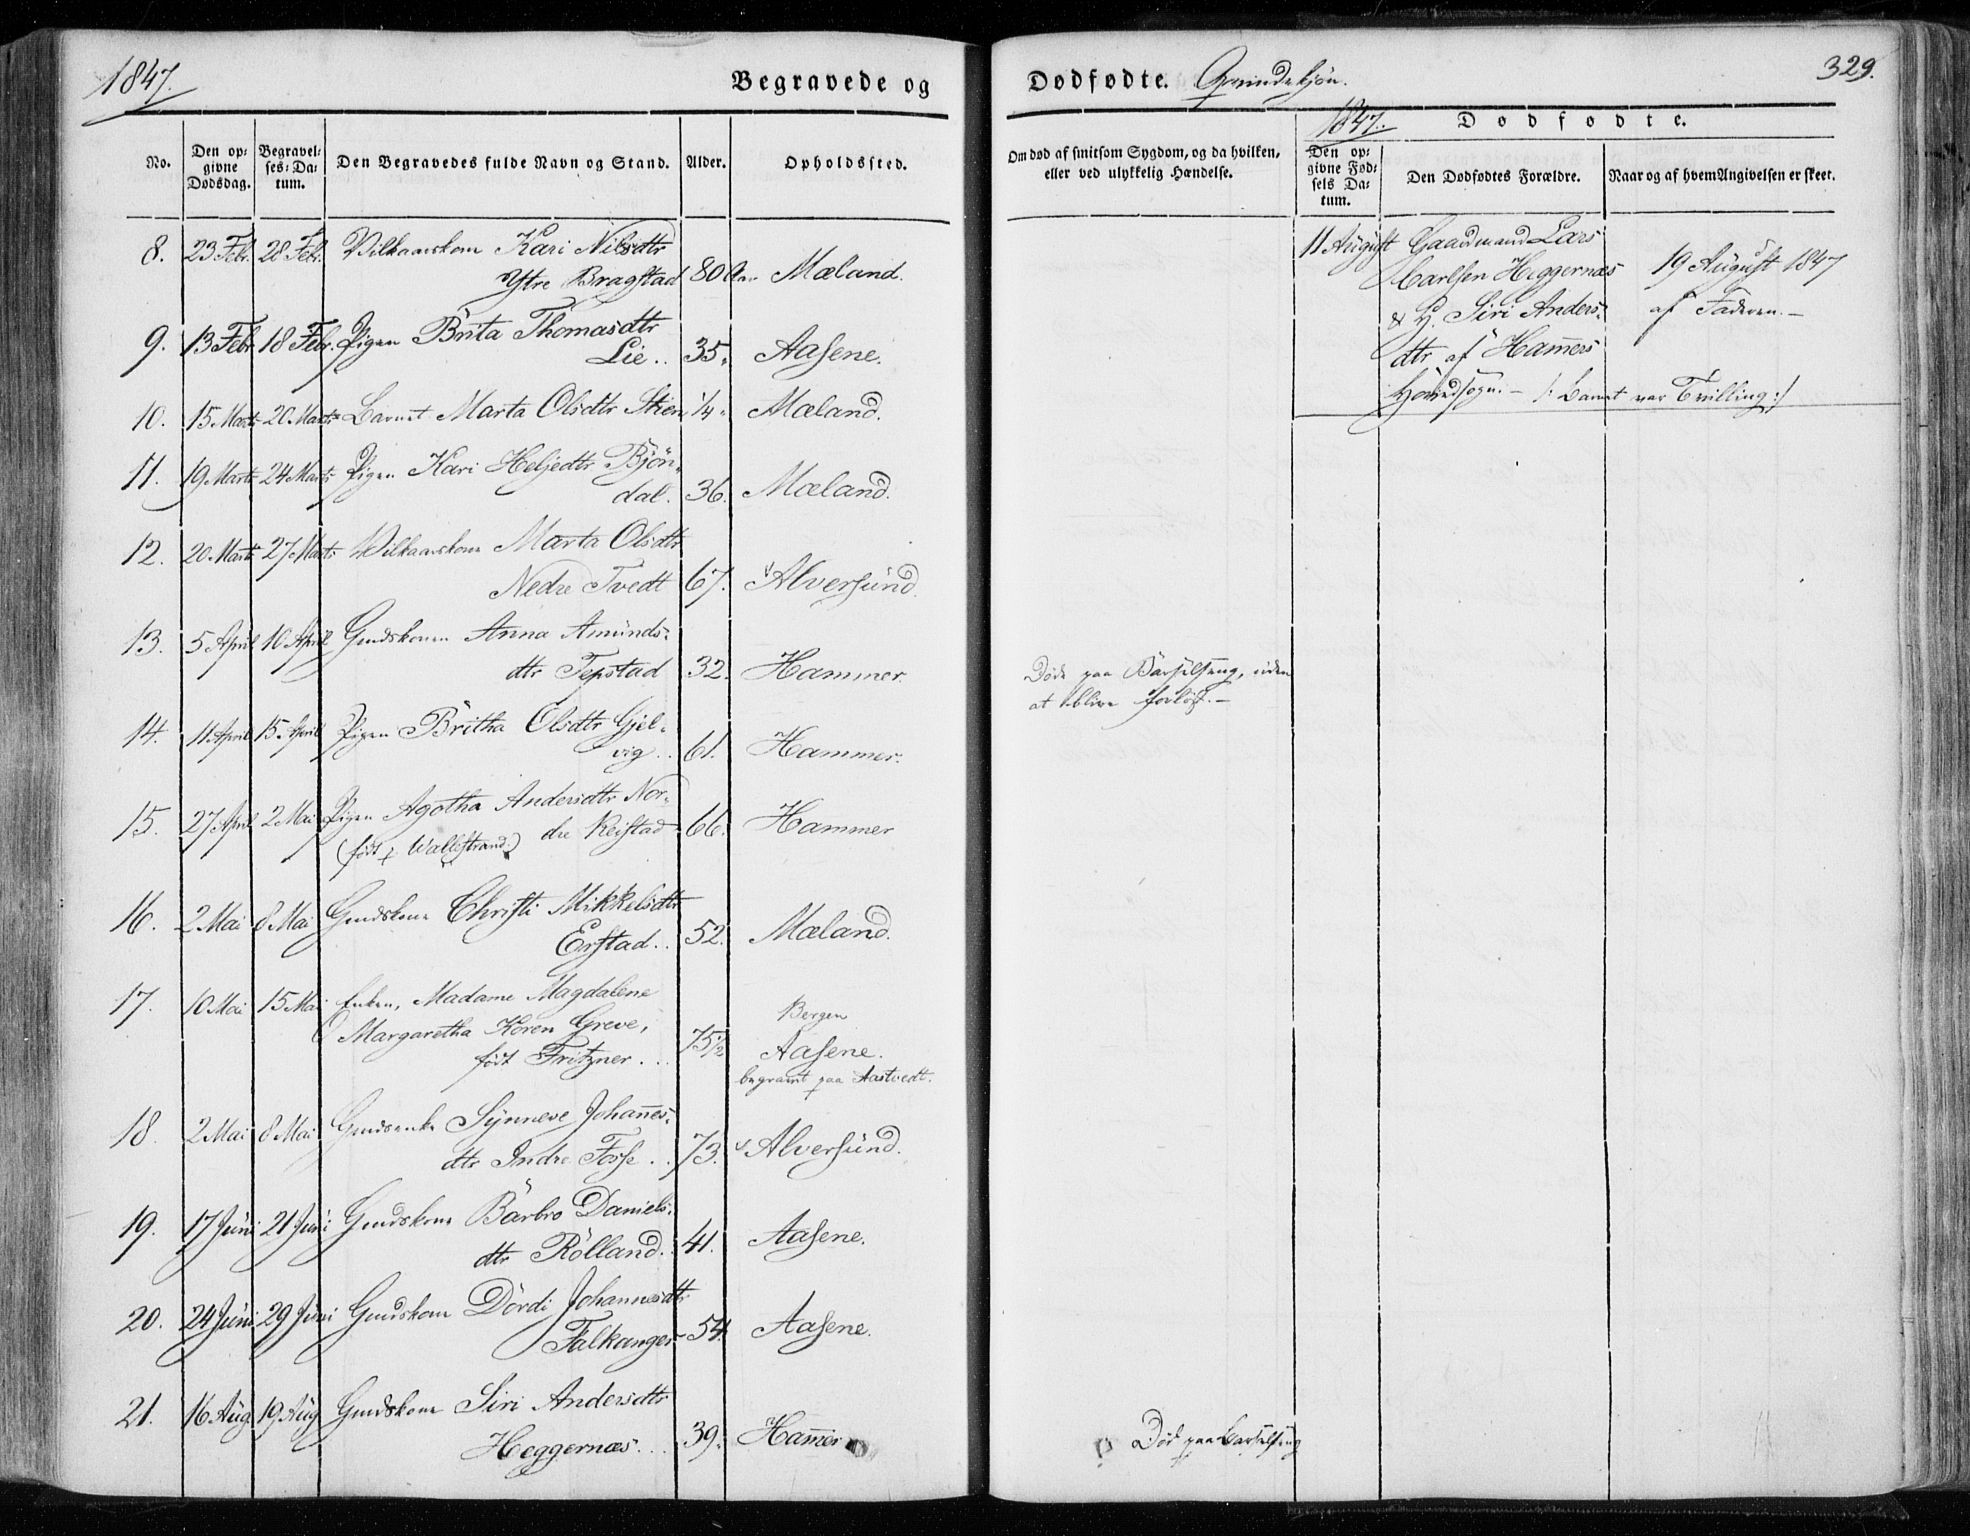 1847.
Begravede og
No.
Den op-
givne
Dødsdag.
Begravel-
ses-Da-
tum.
Den Begravedes fulde Navn og Stand.
Alder.
Opholdssted.
8. 23 Febr. 28 Febr. Vilkaarskone Kari Nilsdtr
Ytre Bragstad 80 Mæland.
9. 13 Febr 18 Febr. Pigen Brita Thomasdtr
Lie.. 35. Aasene.
10. 15 Marts 20 Marts Barnet Marta Olsdtr Skien 1/4. Mæland.
11. 19 Marts 24 Marts Pigen Kari Heljedtr Bjøn-
dal. 36. Mæland.
12. 20 Marts 27 Marts Vilkaarskone Marta Olsdtr
Nedre Tvedt 67. Alversund.
13. 5 April 10 April Gmdskonen Anna Amunds-
dtr Tepstad 32. Hammer.
14. 11 April 15 April Pigen Britha Olsdtr Gjel-
vig.. 61. Hammer.
15. 27 April 2 Mai Pigen Agotha Andersdtr Nor-
dre Reistad 66. Hammer
(født Wallestrand.)
16. 2 Mai 8 Mai Gmdskone Christi Mikkelsdtr
Erstad.. 52. Mæland.
17. 10 Mai 15 Mai Enken, Madame Magdalene
Margaretha Koren Greve, Bergen
født Fritzner... 75 1/2 Aasene.
begravet paa Aastvedt.
18. 2 Mai 8 Mai Gmdsenke Synneve Johannes-
dtr Indre Fosse.. 73. Alversund.
19. 17 Juni 21 Juni Gmdskone Barbro Daniels-
dtr Rölland. 41. Aasene.
20. 24 Juni 29 Juni Gmdskone Dördi Johannesdtr
Falkanger 54. Aasene.
21. 16 Aug. 19 Aug Gmdskone Siri Andersdtr
Heggernæs... 39. Hammer
Dødfødte. Qvindekjön.
329.
Om død af smitsom Sygdom, og da hvilken,
eller ved ulykkelig Hændelse.
1847.
Dødfødte.
Den op-
givne Fød-
sels Da-
tum.
Den Dødfødtes Forældre.
Naar og af hvem Angivelsen er skeet.
11 August Gaardmand Lars
Carlsen Heggernæs 19 August 1847
& H. Siri Anders- af Faderen.-
dtr af Hamers
Hovedsogn.- /: Barnet var Trilling:/
Döde paa Barselseng, uden
at blive forlöst.-
Död paa Barselseng